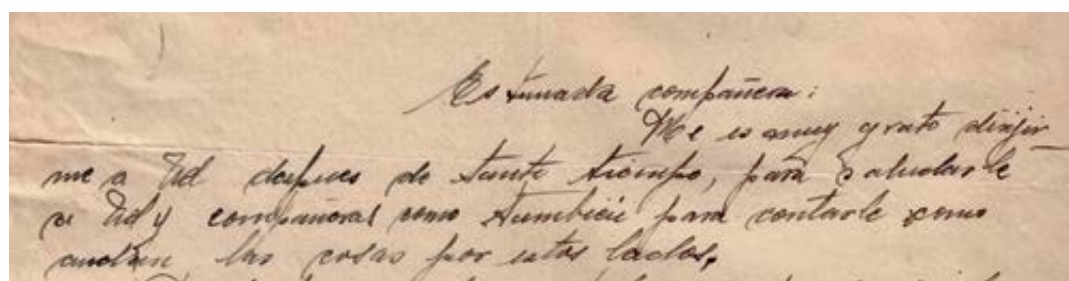 Estimada compañera:
Me es muy grato dirijir_
me a Ud despues de tanto tiempo, para saludarle
a Ud y compañeras como tambien para contarle como
andan las cosas por estos lados,